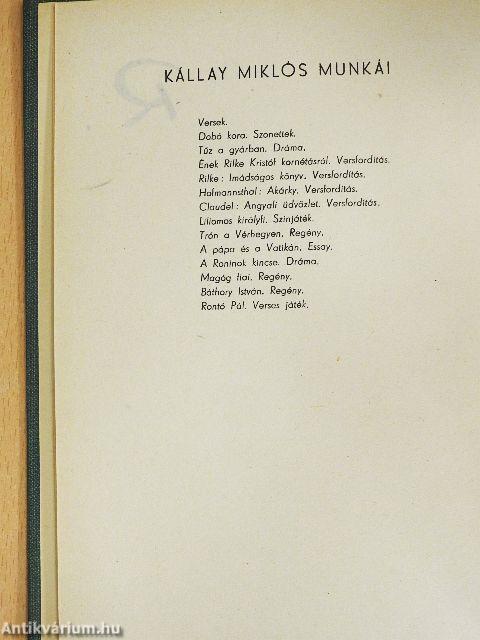 KÁLLAY MIKLÓS MUNKÁI
Versek.
Dobó kora. Szonettek.
Tűz a gyárban. Dráma.
Ének Rilke Kristóf kornétásról. Versfordítás.
Rilke: Imádságos könyv. Versfordítás.
Hofmannsthal: Akárky. Versfordítás.
Claudel: Angyali üdvözlet. Versfordítás.
Liliomos királyfi. Színjáték.
Trón a Vérhegyen. Regény.
A pápa és a Vatikán. Essay.
A Roninok kincse. Dráma.
Magóg fiai. Regény.
Báthory István. Regény.
Rontó Pál. Verses játék.
Antikvárium.hu